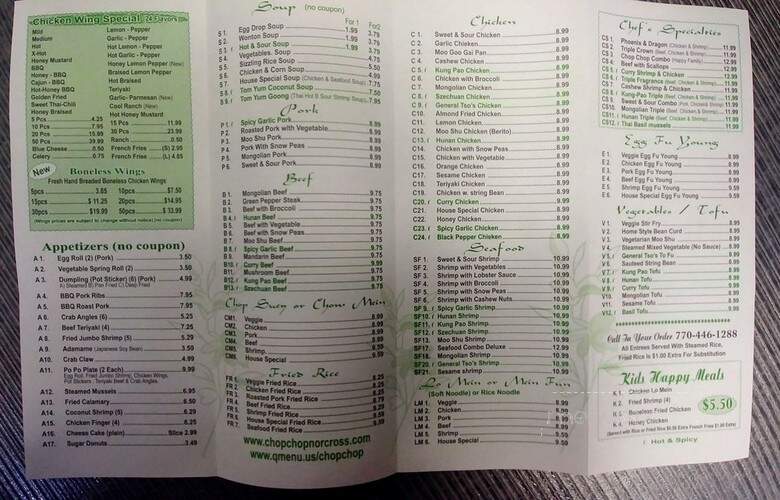 Chicken Wing Special 24 Flavors
Mild
Medium
Hot
X-Hot
Honey Mustard
BBQ
Honey - BBQ
Cajun - BBQ
Hot-Honey BBQ
Golden Fried
Sweet Thai-Chili
Honey Braised
Lemon - Pepper
Garlic - Pepper
Hot Lemon - Pepper
Hot Garlic - Pepper
Honey Lemon Pepper (New)
Braised Lemon Pepper
Hot Braised
Teriyaki
Garlic- Parmesan (New)
Cool Ranch (New)
Hot Honey Mustard
5 Pcs 4.25
10 Pcs 7.95
20 Pcs 15.99
50 Pcs 39.99
Blue Cheese 0.50
Celery 0.75
15 Pcs 11.99
30 Pcs 23.99
Ranch 0.50
French Fries (S) 2.95
French Fries (L) 4.85
New
Boneless Wings
Fresh Hand Breaded Boneless Chicken Wings
5pcs 3.85 10pcs $7.50
15pcs $ 11.25 20pcs $14.95
30pcs $19.99 50pcs $ 33.99
(Wings prices are subject to change without notice) (no coupon)
Appetizers (no coupon)
A 1. Egg Roll (2) (Pork) 3.50
A 2. Vegetable Spring Roll (2) 3.50
A 3. Dumpling (Pot Sticker) (6) (Pork) 4.99
A) Steamed B) Pan Fried C) Deep Fried
A4. BBQ Pork Ribs 7.95
A5. BBQ Roast Pork 7.65
A6. Crab Angles (6) 5.25
A7. Beef Teriyaki (4) 7.25
A8. Fried Jumbo Shrimp (5) 5.29
A9. Adamame (Japanese Soy Bean) 3.59
A10. Crab Claw 4.99
A11. Po Po Plate (2 Each) 9.99
Egg Roll, Fried Jumbo Shrimp, Chicken Wings,
Pot Stickers, Teriyaki Beef & Crab Angles.
A12. Steamed Mussels 6.95
A13. Fried Calamary 6.50
A14. Coconut Shrimp (5) 6.29
A15. Chicken Finger (4) 6.25
A16. Cheese Cake (plain) Slice 2.99
A17. Sugar Donuts 3.49
Soup (no coupon)
For 1 For2
S 1. Egg Drop Soup 1.99 3.75
S 2. Wonton Soup 1.99 3.75
S 3. Hot & Sour Soup 1.99 3.75
S 4. Vegetables. Soup 3.95
S 5. Sizzling Rice Soup 4.75
S 6. Chicken & Corn Soup 5.50
S 7. House Special Soup (Chicken & Seafood Soup) 7.75
S 8. Tom Yum Coconut Soup 7.50
S 9. Tom Yum Goong (Thai Hot & Sour Shrimp Soup) 7.95
Pork
P 1. Spicy Garlic Pork 8.99
P 2. Roasted Pork with Vegetable 8.99
P 3. Moo Shu Pork 8.99
P 4. Pork With Snow Peas 8.99
P 5. Mongolian Pork 8.99
P 6. Sweet & Sour Pork 8.99
Beef
B 1. Mongolian Beef 9.75
B 2. Green Pepper Steak 9.75
B 3. Beef with Broccoli 9.75
B 4. Hunan Beef 9.75
B 5. Beef with Vegetable 9.75
B 6. Beef with Snow Peas 9.75
B 7. Moo Shu Beef 9.75
B 8. Spicy Garlic Beef 9.75
B 9. Mandarin Beef 9.75
B10. Curry Beef 9.75
B11. Mushroom Beef 9.75
B12. Kung Pao Beef 9.75
B13. Szechuan Beef 9.75
Chop Suey or Chow Mein
CM1. Veggie 8.99
CM2. Chicken 8.99
CM3. Pork 8.99
CM4. Beef 8.99
CM5. Shrimp 9.59
CM6. House Special 9.59
Fried Rice
FR 1. Veggie Fried Rice 8.25
FR 2. Chicken Fried Rice 8.25
FR 3. Roasted Pork Fried Rice 8.25
FR 4. Beef Fried Rice 8.25
FR 5. Shrimp Fried Rice 9.25
FR 6. House Special Fried Rice 8.99
FR 7. Seafood Fried Rice 9.99
www.chopchopnorcross.com
www.qmenu.us/chopchop
Chicken
C 1. Sweet & Sour Chicken 8.99
C 2. Garlic Chicken 8.99
C 3. Moo Goo Gai Pan 8.99
C 4. Cashew Chicken 8.99
C 5. Kung Pao Chicken 8.99
C 6. Chicken with Broccoli 8.99
C 7. Mongolian Chicken 8.99
C 8. Szechuan Chicken 8.99
C 9. General Tso's Chicken 8.99
C10. Almond Fried Chicken 8.99
C11. Lemon Chicken 8.99
C12. Moo Shu Chicken (Berito) 8.99
C13. Hunan Chicken 8.99
C14. Chicken with Snow Peas 8.99
C15. Chicken with Vegetable 8.99
C16. Orange Chicken 8.99
C17. Sesame Chicken 8.99
C18. Teriyaki Chicken 8.99
C19. Chicken w. string Bean 8.99
C20. Curry Chicken 8.99
C21. House Special Chicken 8.99
C22. Honey Chicken 8.99
C23. Spicy Garlic Chicken 8.99
C24. Black Pepper Chicken 8.99
Seafood
SF 1. Sweet & Sour Shrimp 10.99
SF 2. Shrimp with Vegetables 10.99
SF 3. Shrimp with Lobster Sauce 10.99
SF 4. Shrimp with Broccoli 10.99
SF 5. Shrimp with Snow Peas 10.99
SF 6. Shrimp with Cashew Nuts 10.99
SF 9. Spicy Garlic Shrimp 10.99
SF10. Hunan Shrimp 10.99
SF11. Kung Pao Shrimp 10.99
SF12. Szechuan Shrimp 10.99
SF13. Moo Shu Shrimp 10.99
SF17. Seafood Combo Deluxe 12.99
SF18. Mongolian Shrimp 10.99
SF20. General Tso's Shrimp 10.99
SF21. Sesame shrimp 10.99
Lo Mein or Mein Fun
(Soft Noodle) or Rice Noodle
LM 1. Veggie 8.99
LM 2. Chicken 8.99
LM 3. Pork 8.99
LM 4. Beef 8.99
LM 5. Shrimp 9.59
LM 6. House Special 9.59
Chef's Specialties
CS 1. Phoenix & Dragon (Chicken & Shrimp) 11.99
CS 2. Triple Crown (Beef, Chicken & Shrimp) 11.99
CS 3. Chop Chop Combo (Happy Family) 12.99
CS 4. Beef with Scallops 12.99
CS 5. Curry Shrimp & Chicken 12.99
CS 6. Triple Fragrance (Beef, Chicken & Shrimp) 11.99
CS 7. Cashew Shrimp & Chicken 11.99
CS 8. Kung-Pao Triple (Beef, Chicken & Shrimp) 11.99
CS 9. Sweet & Sour Combo (Pork, Chicken& Shrimp) 11.99
CS10. Mongolian Triple (Beef, Chicken & Shrimp) 11.99
CS11. Hunan Triple (Beef, Chicken & Shrimp) 11.99
CS12. Thai Basil mussels 11.99
Egg Fu Young
E 1. Veggie Egg Fu Young 8.99
E 2. Chicken Egg Fu Young 8.99
E 3. Pork Egg Fu Young 8.99
E 4. Beef Egg Fu Young 8.99
E 5. Shrimp Egg Fu Young 9.59
E 6. House Special Egg Fu Young 9.59
Vegetables / Tofu
V 1. Veggie Stir Fry 8.99
V 2. Home Style Bean Curd 8.99
V 3. Vegetarian Moo Shu 8.99
V 4. Steamed Mixed Vegetable (No Sauce) 8.99
V 5. General Tso's To Fu 8.99
V 6. Sauteed String Bean 8.99
V 7. Kung Pao Tofu 8.99
V 8. Hunan Tofu 8.99
V 9. Curry Tofu 8.99
V10. Mongolian Tofu 8.99
V11. Sesame Tofu 8.99
V12. Basil Tofu 8.99
Call In Your Order 770-446-1288
All Entrees Served With Steamed Rice,
Fried Rice is $1.00 Extra For Substitution
Kids Happy Meals
K 1. Chicken Lo Mein
K 2. Fried Shrimp (4)
K 3. Boneless Fried Chicken
K 4. Honey Chicken
$5.50
(Served with Rice or Fried Rice $0.50 Extra French Fries $1.00 Extra)
Hot & Spicy